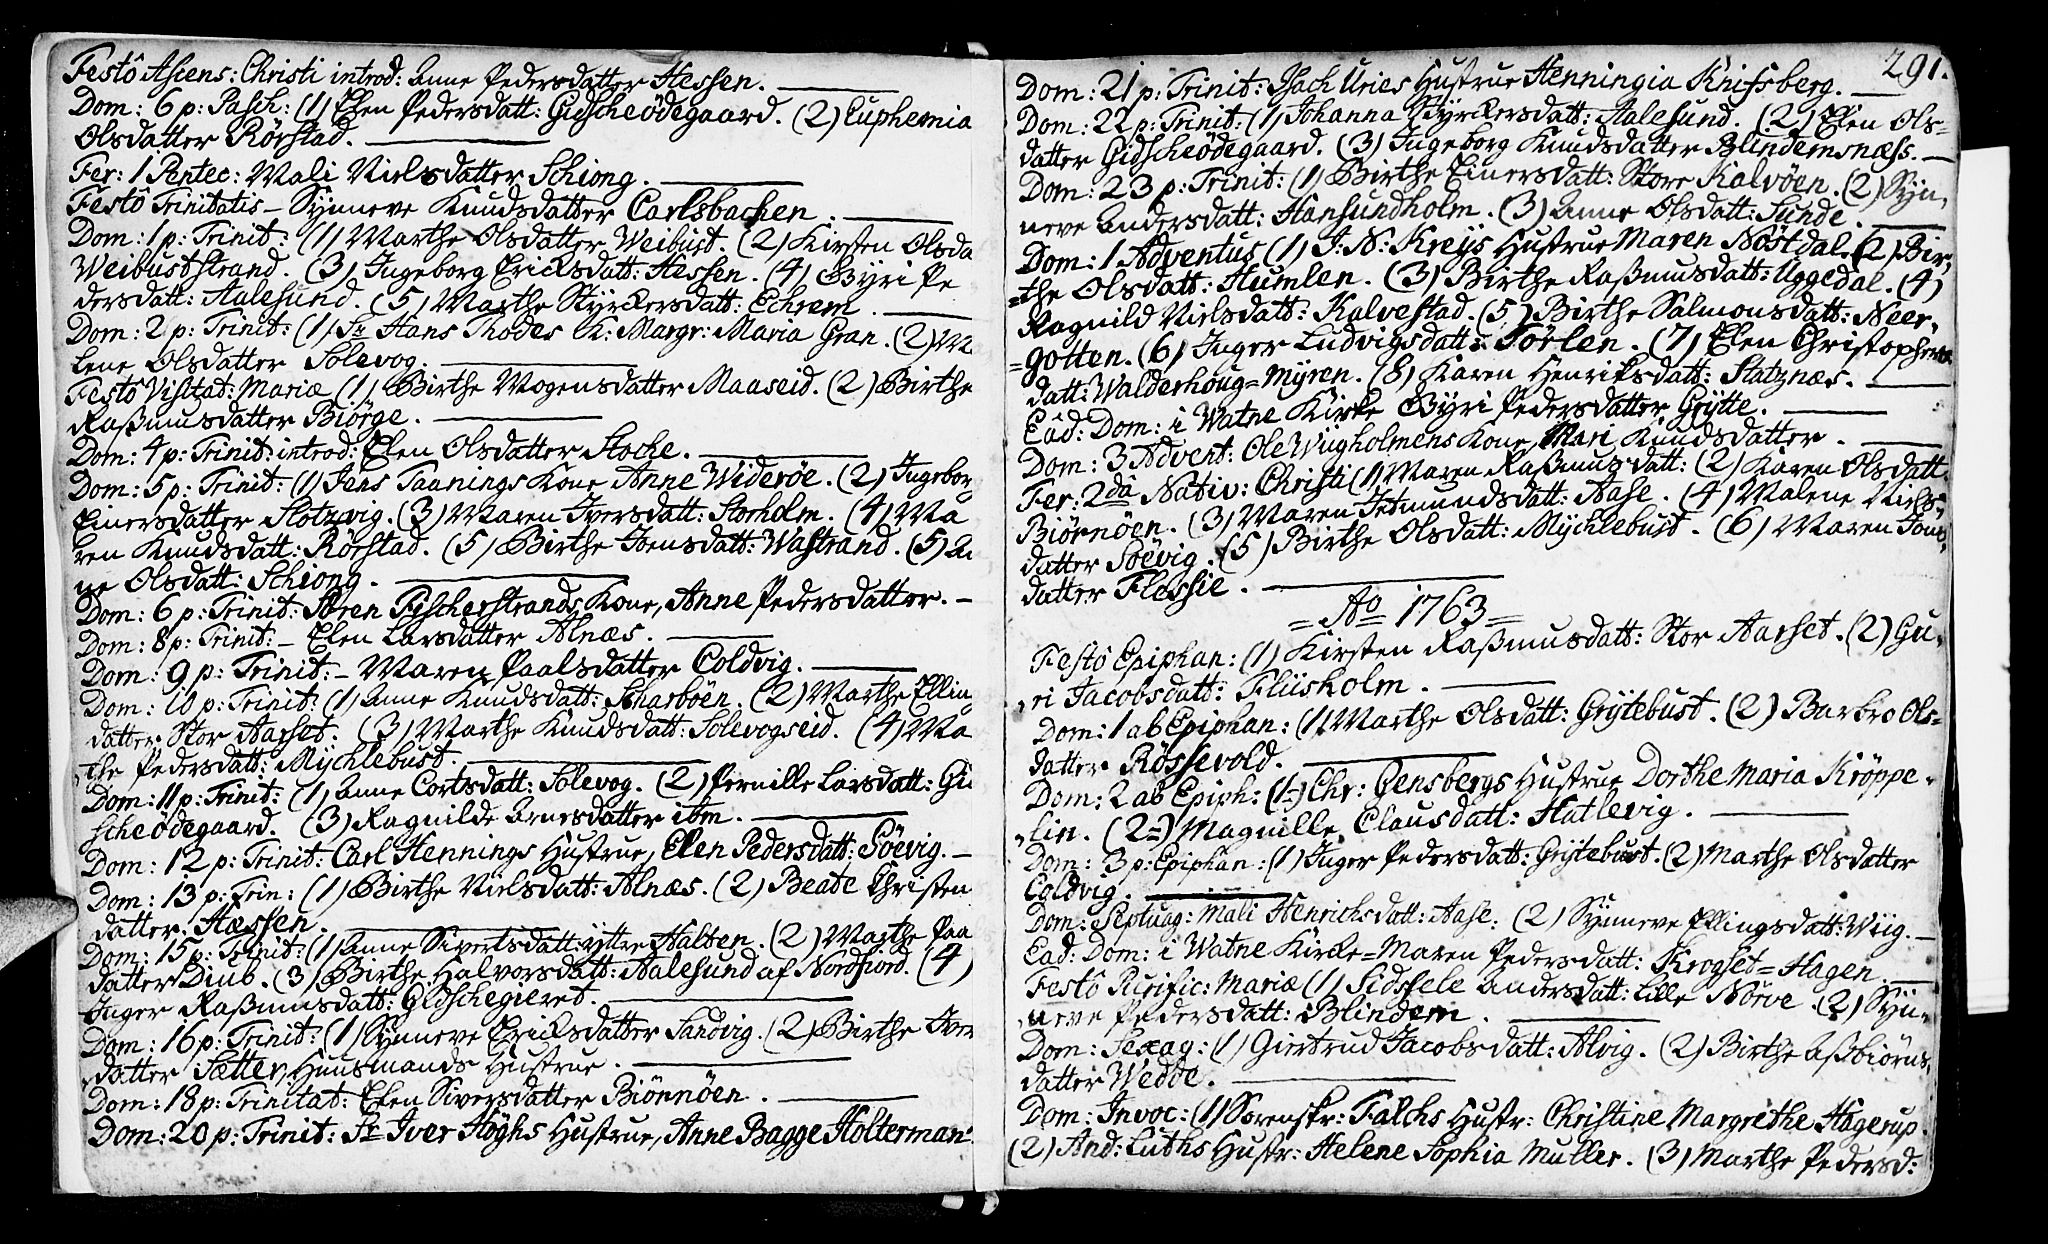 Festô Ascens: Christi introd: Anne Pedersdatter Hessen.
Dom: 6 p: Pasch: (1) Elen Pedersdatt: Gidscheödegaard. (2) Euphemia
Olsdatter Rörstad.
Fer: 1 Pentec: Mali Nielsdatter Schiong.
Festô Trinitatis - Synneve Knudsdatter Carlsbachen.
Dom: 1 p: Trinit: (1) Marthe Olsdatter Weibust. (2) Kirsten Olsda
Weibuststrand. (3) Ingeborg Ericksdatt: Hessen. (4) Gyri Pe
dersdatt: Aalesund. (5) Marthe Styrckersdatt: Echrem.
Dom: 2 p: Trinit: (1) Sr Hans Thodes K: Margr: Maria Gran. (2) M
lene Olsdatter Solevog.
Festô Visitat: Mariæ (1) Birthe Mogensdatter Maaseid. (2) Birthe
Raßmusdatter Biörge.
Dom: 4 p: Trinit: introd: Elen Olsdatter Stocke.
Dom: 5 p: Trinit: (1) Jens Taanings Kone Anne Widerøe. (2) Ingebor
Einersdatter Slotzvig. (3) Maren Iversdatt: Storholm. (4) Ma
ren Knudsdatt: Rörstad. (5) Birthe Joensdatt: Wastrand. (5) An
ne Olsdatt: Schiong.
Dom: 6 p: Trinit: Sören Fischerstrands Kone, Anne Pedersdatter.
Dom: 8 p: Trinit: - Elen Larsdatter Alnæs.
Dom: 9 p: Trinit: - Maren Paalsdatter Coldvig.
Dom: 10 p: Trinit: (1) Anne Knudsdatt: Skarböen. (2) Marthe Ellin
datter Stor Aarset. (3) Marthe Knudsdatt: Solevogseid. (4) Ma
the Pedersdatt: Mychlebust.
Dom: 11 p: Trinit: (1) Anne Cortsdatt: Solevog. (2) Pernille Larsdatt: Gid
scheödegaard. (3) Ragnilde Arnesdatter itm.
Dom: 12 p: Trinit: Carl Hennings Hustrue, Elen Pedersdatt: Söevig.
Dom: 13 p: Trin: (1) Birthe Nielsdatt: Alnæs. (2) Beate Christen
datter Hæssen.
Dom: 15 p: Trinit: (1) Anne Sivertsdatt: yttre Halten. (2) Marthe Paa
datter Diub. (3) Birthe Halvorsdatt: Aalesund af Nordfiord. (4)
Inger Raßmusdatt: Gidschegieret.
Dom: 16 p: Trinit: (1) Synneve Ericksdatter Sandvig. (2) Birthe Iver
datter Sætter, Huusmands Hustrue.
Dom: 18 p: Trinitat: Elen Siversdatter Biönnöen.
Dom: 20 p: Trinit: Sr Iver Höghs Hustrue, Anne Bagge Holterman
291.
Dom: 21 p: Trinit: Isach Uries Hustrue Henningia Knifsberg.
Dom: 22 p: Trinit: (1) Johanna Styrckersdatt: Aalesund. (2) Elen Ols-
datter Gidscheödegaard. (3) Ingeborg Knudsdatter Blindemsnæss.
Dom: 23 p: Trinit: (1) Birthe Einersdatt: Store Kalvöen. (2) Syn-
neve Andersdatt: Hansundholm. (3) Anne Olsdatt: Sunde.
Dom: 1 Adventus (1) J: N: Kreys Hustrue Maren Nöstdal. (2) Bir-
=the Olsdatt: Humlen. (3) Birthe Raßmusdatt: Uggedal. (4)
Ragnild Nielsdatt: Kalvestad. (5) Birthe Salmonsdatt: Neer-
=gotten. (6) Inger Ludvigsdatt: Törlen. (7) Elen Christophers
datt: Walderhoug=Myren. (8) Karen Henriksdatt: Slatznæs.
Eâd: Dom: i Watne Kirke Gyri Pedersdatter Grytte.
Dom: 3 Advent: Ole Wiigholmens Kone, Mari Knudsdatter.
Fer: 2dâ Nativ: Christi (1) Maren Raßmusdatt: (2) Karen Olsdatt
Biörnöen. (3) Maren Jetmundsdatt: Aase. (4) Malene Niels-
datter Söevig. (5) Birthe Olsdatt: Mychlebust. (6) Maren Jons-
datter Flessie.
= Ao 1763 =
Festô Epiphan: (1) Kirsten Raßmusdatt: Stor Aarset. (2) Gu-
ri Jacobsdatt: Fliisholm.
Dom: 1 ab Epiphan: (1) Marthe Olsdatt: Grytebust. (2) Barbro Ols-
datter Rössevold.
Dom: 2 ab Epiph: (1=) Chr: Gensbergs Hustrue Dorthe Maria Kröppe-
lin. (2=) Magnille Clausdatt: Hatlevig.
Dom: 3 p: Epiphan: (1) Inger Pedersdatt: Grytebust. (2) Marthe Olsdatter
Coldvig.
Dom: Septuag: Mali Henrichsdatt: Aase: (2) Synneve Ellingsdatt: Wiig.
Ead: Dom: i Watne Kirke = Maren Pedersdatt: Krogset=Hagen.
Festô Purific: Mariæ (1) Sidssele Andersdatt: Lille Nörve (2) Syn-
neve Pedersdatt: Blindem.
Dom: Sexag: (1) Giertrud Jacobsdatt: Alvig. (2) Birthe Aßbiörns-
datter Wedde.
Dom: Invoc: (1) Sorenskr: Falchs Hustr: Christine Margrethe Hagerup.
(2) And: Luths Hustr: Helene Sophia Muller. (3) Marthe Pedersd: